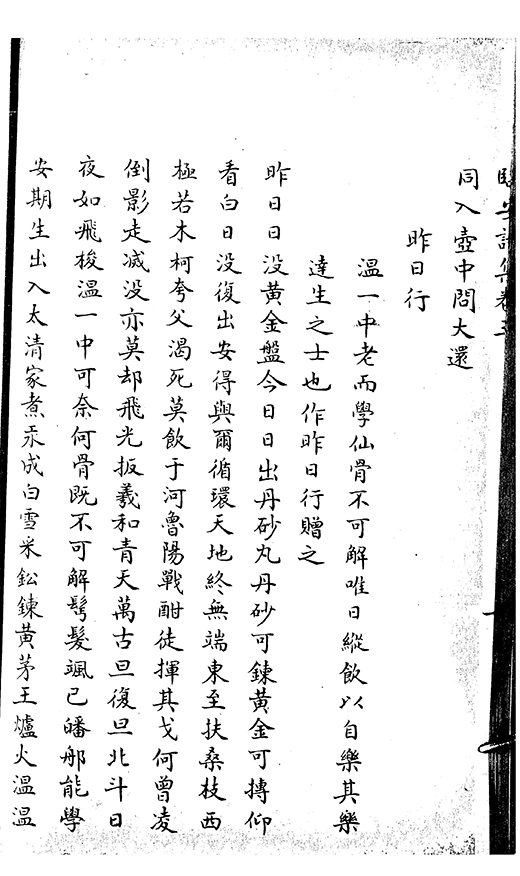 臨安詩集卷三
同入壺中問大還
昨日行
溫一中老而學仙骨不可解唯日縱飲以自樂其樂
達生之士也作昨日行贈之
昨日日没黃金盤今日日出丹砂丸丹砂可鍊黃金可摶仰
看白日没復出安得與爾循環天地終無端東至扶桑枝西
極若木柯夸父渴死莫飲于河魯陽戰酣徒揮其戈何曾凌
倒影走滅没亦莫却飛光扳羲和青天萬古旦復旦北斗日
夜如飛梭溫一中可奈何骨既不可解鬂髮颯已皤那能學
安期生出入太清家煮汞成白雪采鈆鍊黃茅王爐火溫溫